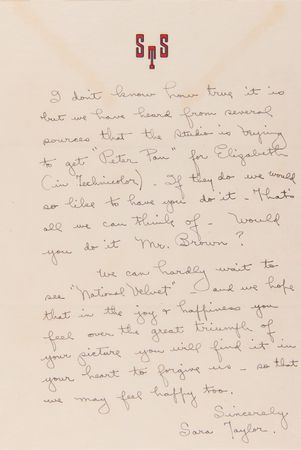 STS
I don't know how true it is
but we have heard from several
sources that the studio is trying
to get "Peter Pan" for Elizabeth
(in Technicolor). If they do we would
so like to have you do it - That's
all we can think of - Would
you do it Mr. Brown?
We can hardly wait to
see "National Velvet" - and we hope
that in the joy & happiness you
feel over the great triumph of
your picture you will find it in
your heart to forgive us - so that
we may feel happy too.
Sincerely,
Sara Taylor.